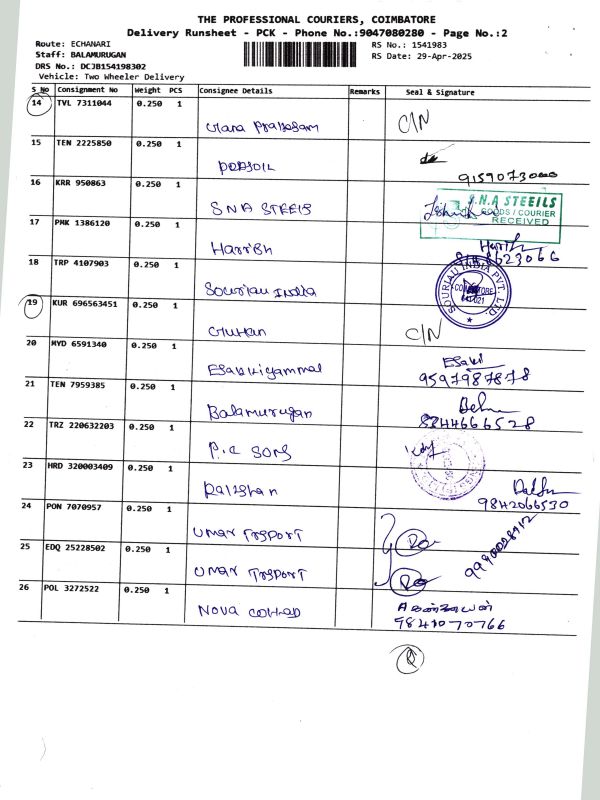 THE PROFESSIONAL COURIERS, COIMBATORE
Delivery Runsheet - PCK - Phone No.:9047080280 - Page No.:2
Route: ECHANARI RS No.: 1541983
Staff: BALAMURUGAN RS Date: 29-Apr-2025
DRS No.: DCJB154198302
Vehicle: Two Wheeler Delivery
S No Consignment No Weight PCS Consignee Details Remarks Seal & Signature
14 TVL 7311044 0.250 1
C/N
15 TEN 2225850 0.250 1
16 KRR 950863 0.250 1
S.N.A STEEILS
GOODS / COURIER
RECEIVED
SNA STEEIS
17 PMK 1386120 0.250 1
Harish
18 TRP 4107903 0.250 1
SOURIAU INDIA PVT. LTD.
COIMBATORE
641 021
Souriau India
19 KUR 696563451 0.250 1
C/N
20 MYD 6591340 0.250 1
Esakkiyammal
Esaki
9597987878
21 TEN 7959385 0.250 1
Balamurugan
8244666528
22 TRZ 220632203 0.250 1
P.C SONS
23 HRD 320003409 0.250 1
9842066530
24 PON 7070957 0.250 1
Umar TRSPORT
25 EDQ 25228502 0.250 1
Umar TRSPORT
26 POL 3272522 0.250 1
Nova
9841070766